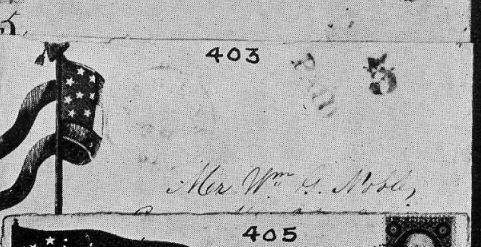 403
Paid
3
Mrs Wm G. Noble,
405